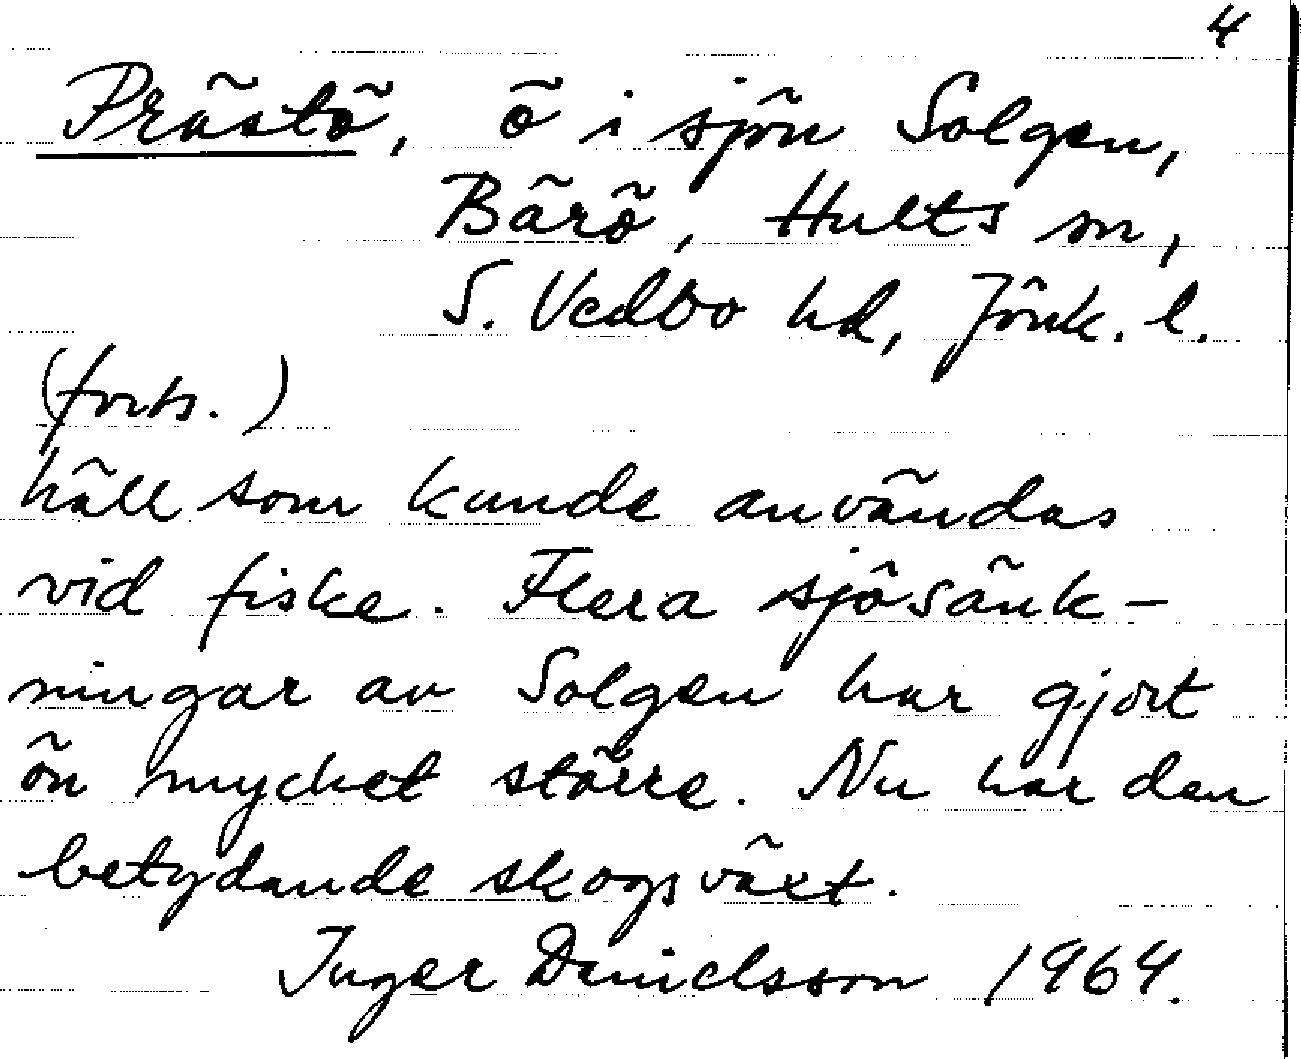 4
Prästö, ö i sjön Solgen,
Bärö, Hults sn,
S. Vedbo hd, Jönk. l.
(forts.)
häll som kunde användas
vid fiske. Flera sjösänk-
ningar av Solgen har gjort
ön mycket större. Nu har den
betydande skogsväxt.
Inger Danielsson 1964.